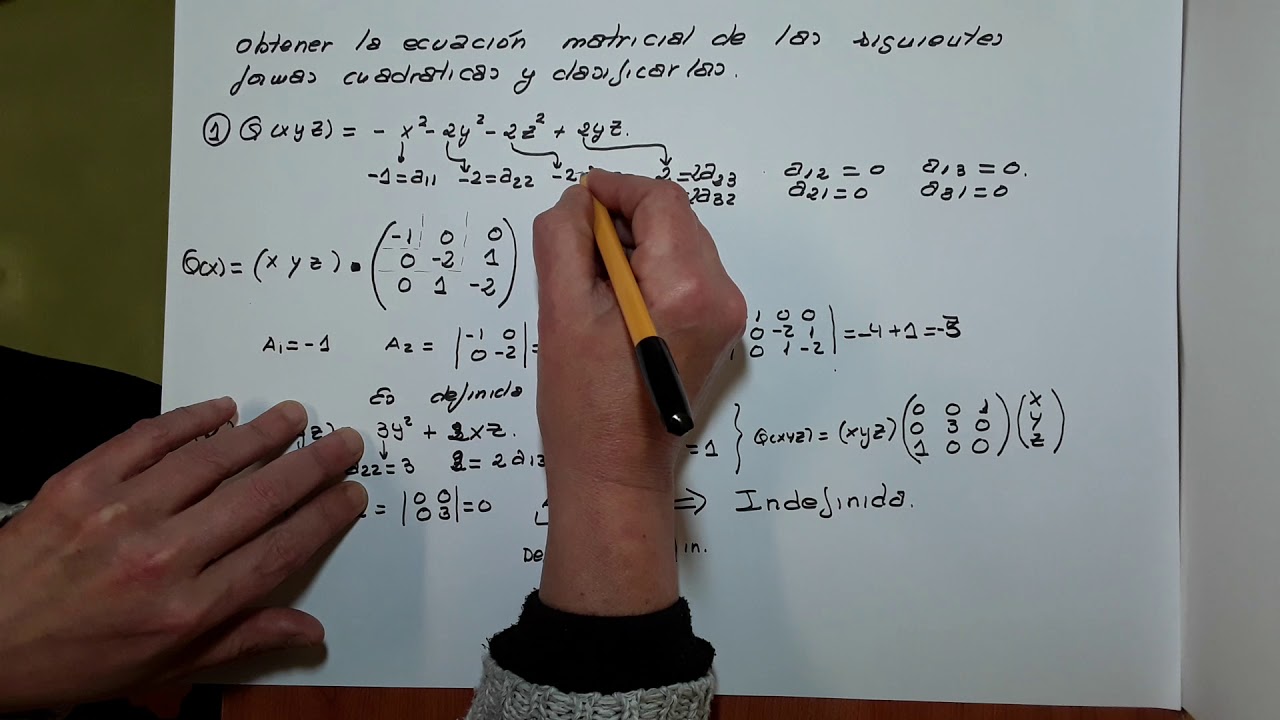 Obtener la ecuación matricial de las siguientes
formas cuadráticas y clasificarlas.
① Q(xyz) = - x² - 2y² - 2z² + 2yz.
-1=a₁₁ -2=a₂₂ -2 2=2a₂₃ a₁₂=0 a₁₃=0.
2a₃₂ a₂₁=0 a₃₁=0
Q(x)= (x y z) · (-1 0 0
0 -2 1
0 1 -2)
A₁=-1 A₂= |-1 0
0 -2| = 1 0 0
0 -2 1
0 1 -2| = -4+1=-3
Es definida
3y² + 2xz.
a₂₂=3 2=2a₁₃ =1 } Q(xyz) = (xyz) (0 0 1
0 3 0
1 0 0) (x
y
z)
= |0 0
0 3| =0 ⇒ Indefinida.
De in.